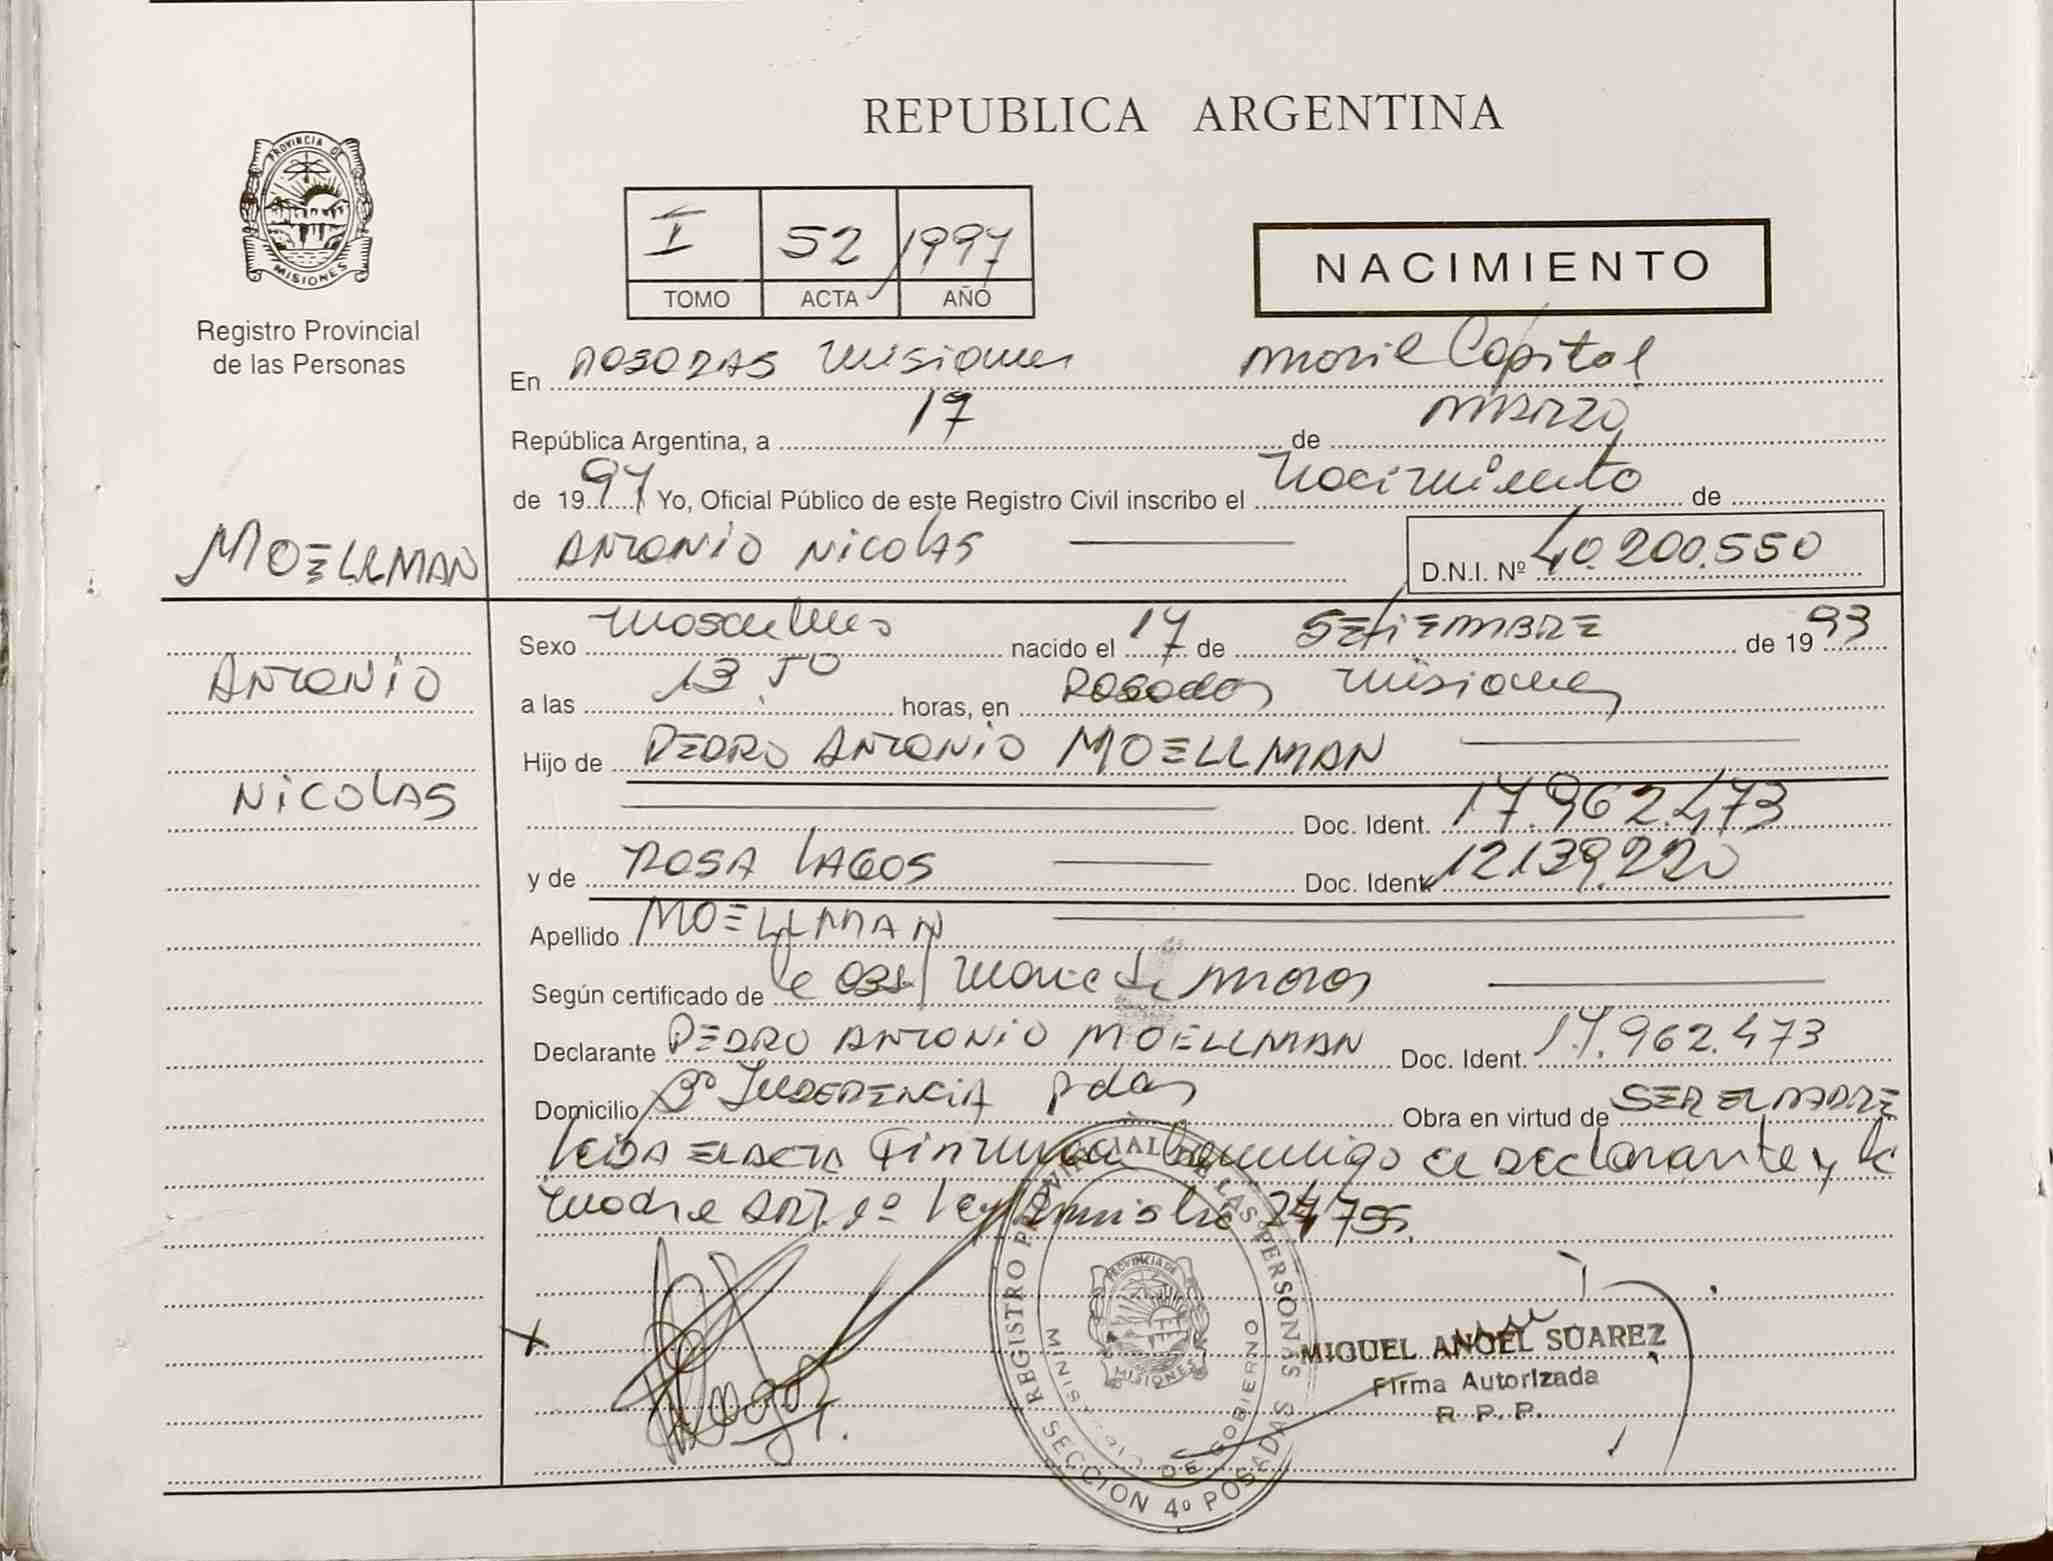 REPUBLICA ARGENTINA
PROVINCIA DE
MISIONES
Registro Provincial
de las Personas
I 52 1997
TOMO ACTA AÑO
NACIMIENTO
En POSADAS Misiones Movil Capital
República Argentina, a 17 de MARZO
de 1997 Yo, Oficial Público de este Registro Civil inscribo el Nacimiento de
MOELLMAN
ANTONIO NICOLAS
D.N.I. Nº 40.200.550
Sexo Masculino nacido el 17 de SETIEMBRE de 1993
ANTONIO
a las 13.50 horas, en Posadas Misiones
Hijo de PEDRO ANTONIO MOELLMAN
NICOLAS
Doc. Ident. 17.962.473
y de ROSA LAGOS Doc. Ident. 12.139.220
Apellido MOELLMAN
Según certificado de
Declarante PEDRO ANTONIO MOELLMAN Doc. Ident. 17.962.473
Domicilio Bº Pdas Obra en virtud de SER EL PADRE
LEIDA EL ACTA Firman conmigo el Declarante y la
Madre ART. Ley 24.755.
REGISTRO PROVINCIAL DE LAS PERSONAS
SECCION 4º POSADAS
MINISTERIO DE GOBIERNO
PROVINCIA DE
MISIONES
X
MIGUEL ANGEL SUAREZ
Firma Autorizada
R. P. P.